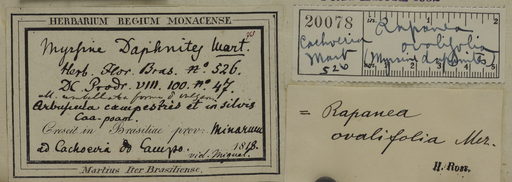 HERBARIUM REGIUM MONACENSE.
Myrsine Daphnites Mart.
Herb. Flor. Bras. nº. 526.
DC. Prodr. VIII. 100. nº. 47.
M. umbellata forma β
Arbuscula campestris et in silvis
Caa-poam.
Crescit in Brasiliae prov: Minarum
ad Cachoeira do Campo. 1818.
vid. Miquel.
Martius Iter Brasiliense.
20078
Rapanea
ovalifolia
(Myrsine daphnites)
Cachoeira
Mart
526
= Rapanea
ovalifolia Mez.
H. Ross.